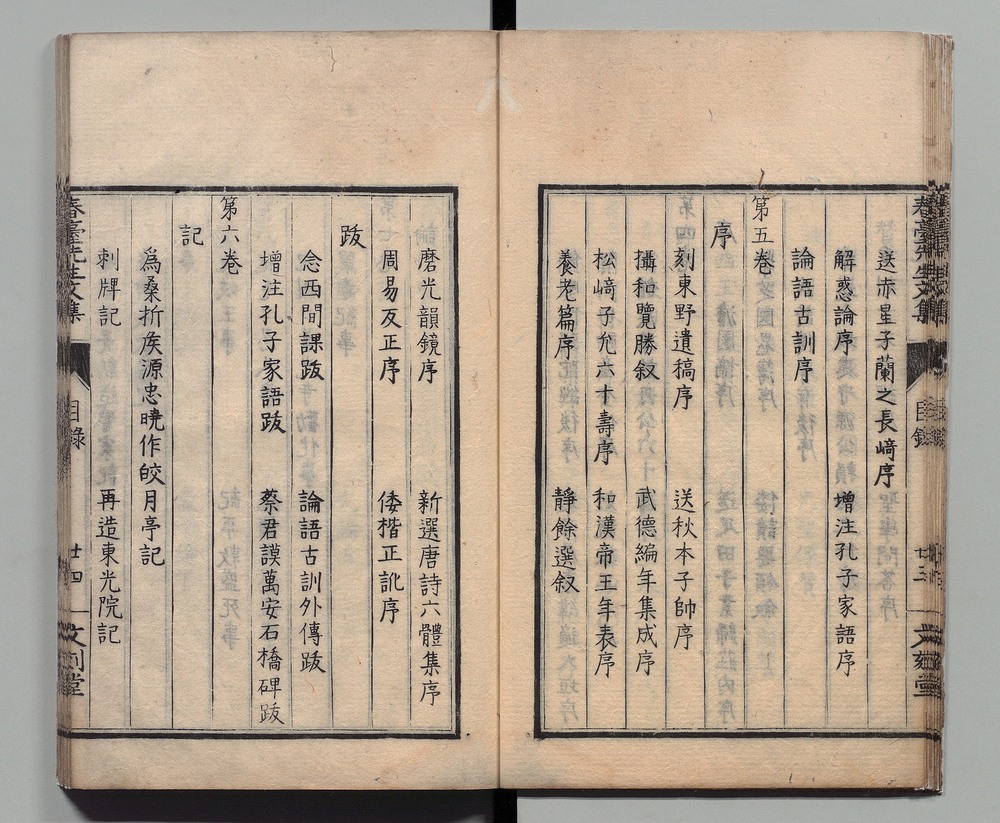 送赤星子蘭之長﨑序
解惑論序 增注孔子家語序
論語古訓序
第五卷
序
刻東野遺稿序 送秋本子帥序
攝和覽勝叙 武德編年集成序
松﨑子允六十壽序 和漢帝王年表序
養老篇序 靜餘選叙
磨光韻鏡序 新選唐詩六體集序
周易反正序 倭楷正訛序
跋
念西間課跋 論語古訓外傳跋
增注孔子家語跋 蔡君謨萬安石橋碑跋
第六卷
記
爲桑折矦源忠曉作皎月亭記
刺牌記 再造東光院記
春臺先生文集
目錄
廿四